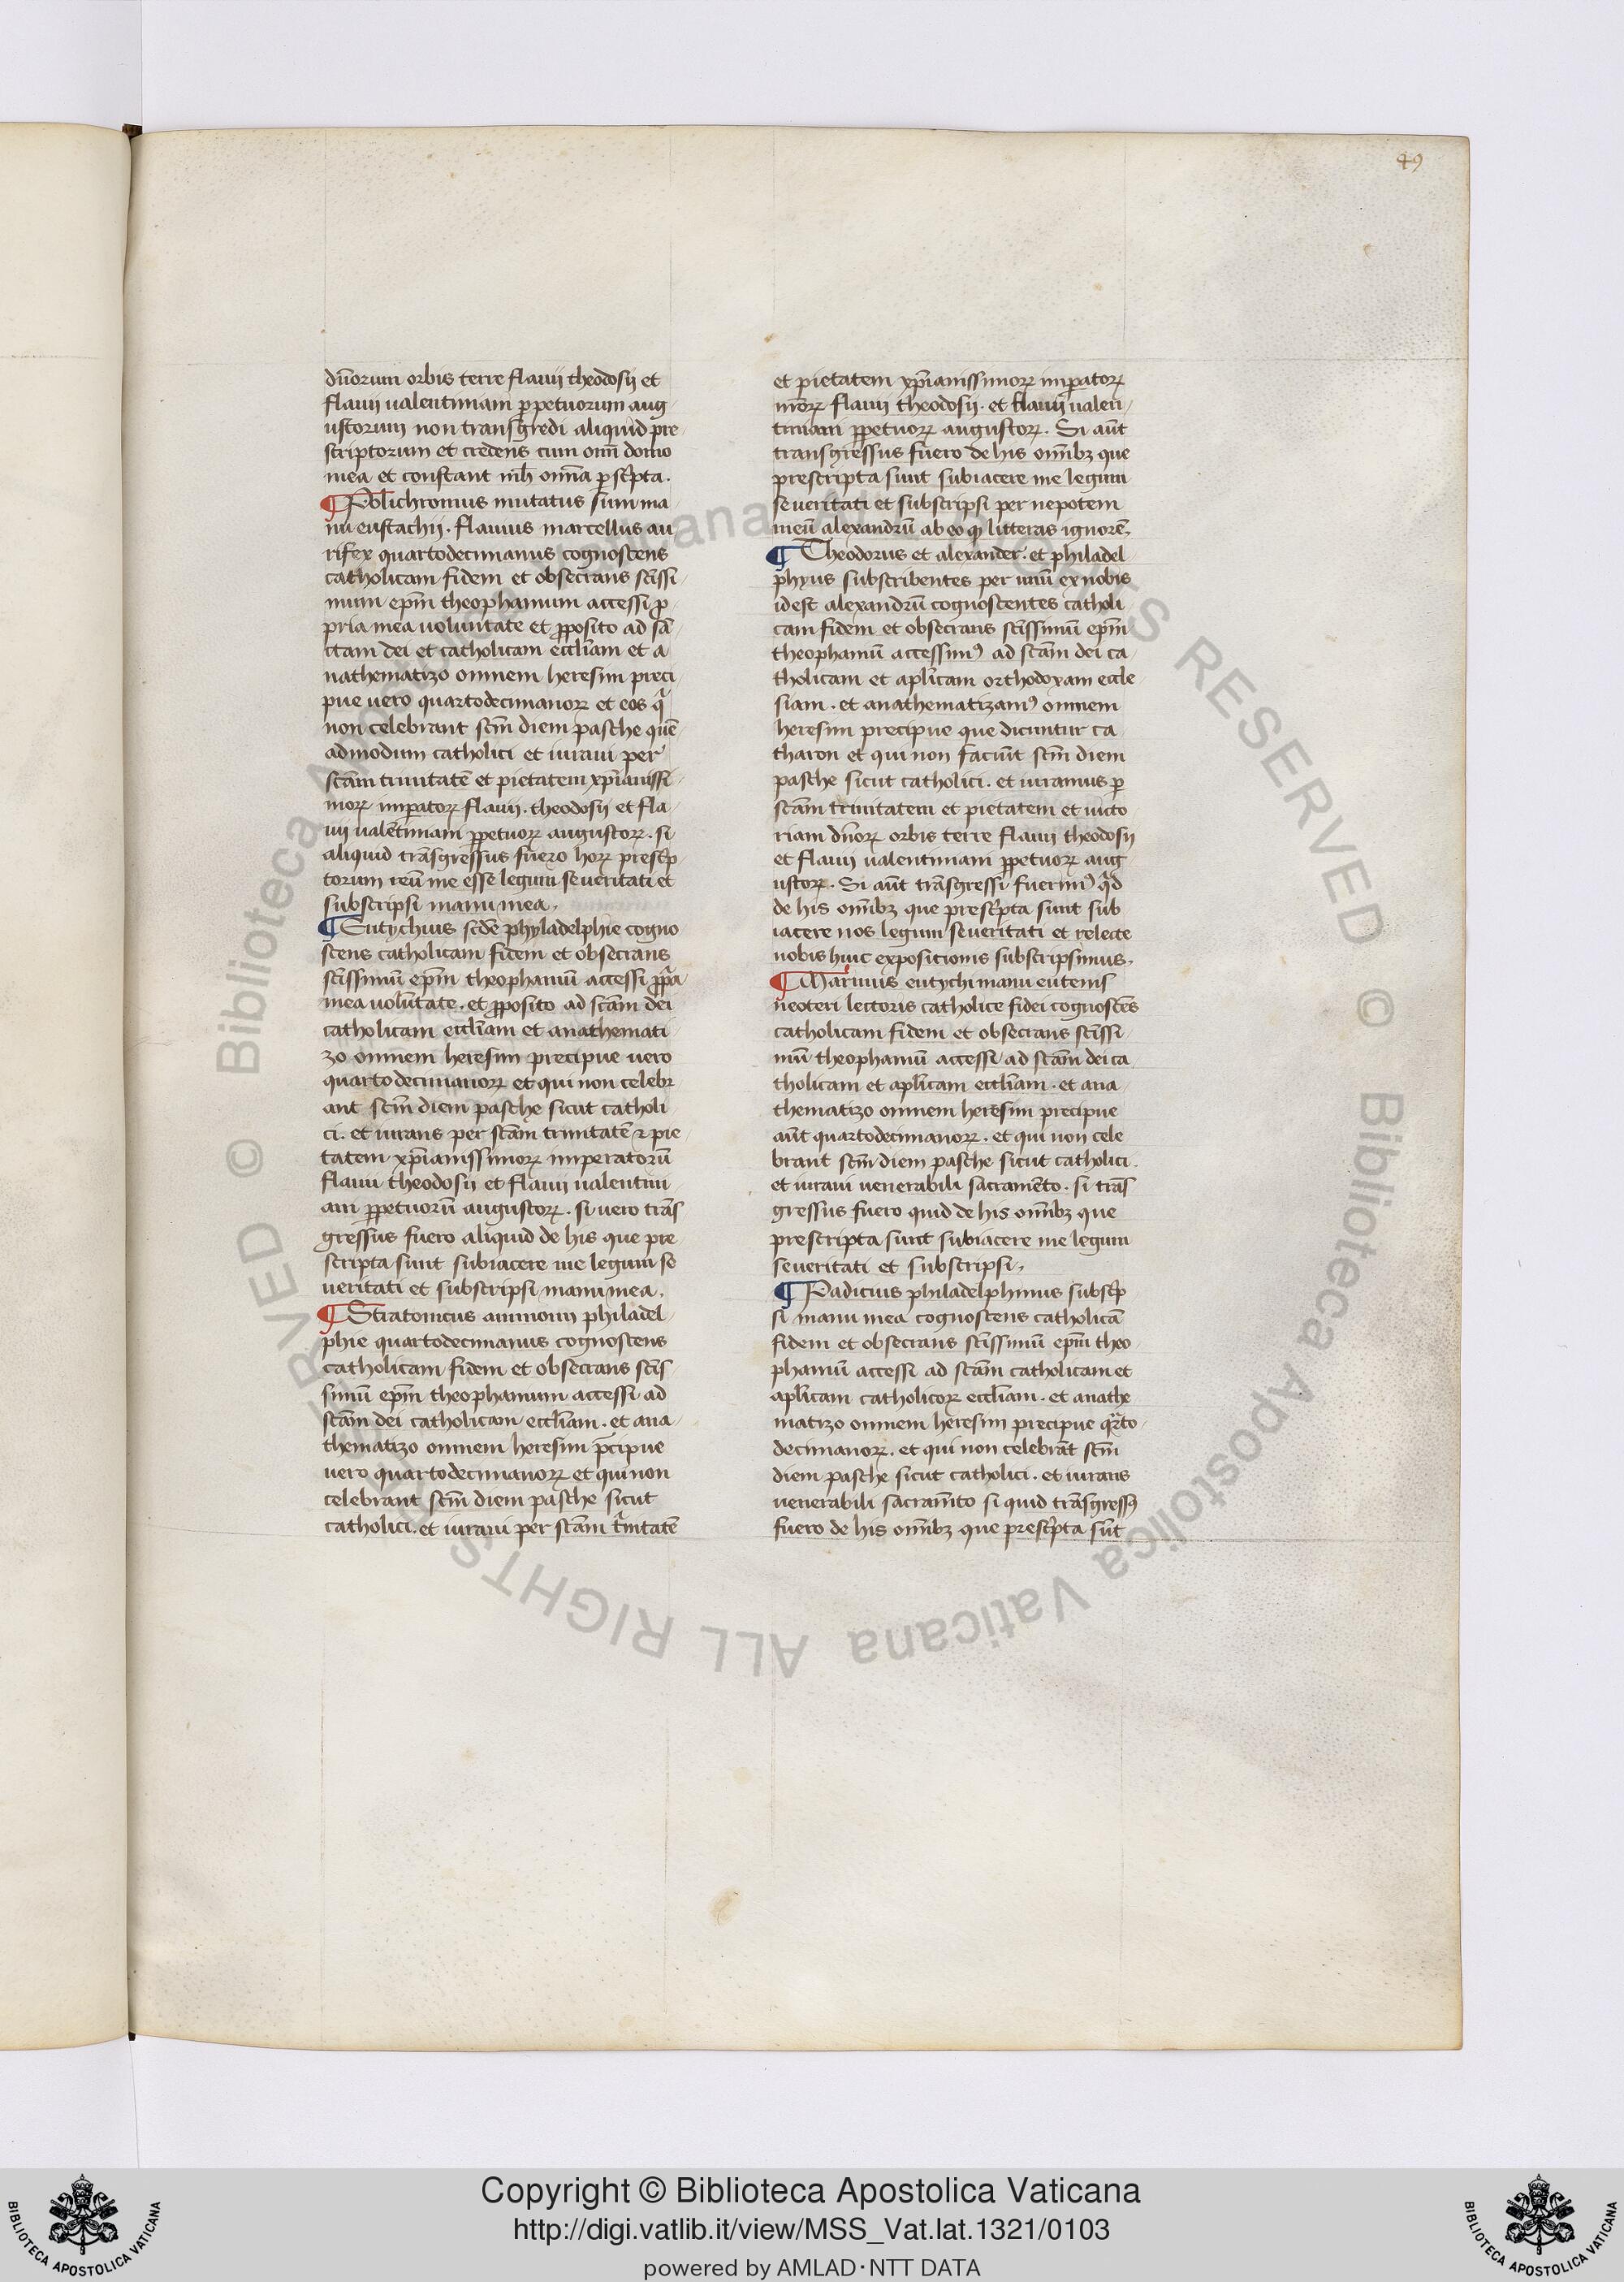 49
dn̄orum orbis terre flauij theodosij et
flauij ualentiniani ꝑpetuorum aug
ustorum non transgredi aliquid pre
scriptorum et credens cum om̄i domo
mea et constant mͥh om̄ia p̱scͥpta.
¶ Polichronius mutatus sum ma
nu eustachij. flauius marcellus au
rifex quartodecimanus cognoscens
catholicam fidem et obsecrans sc̄issi
mum ep̄m theophanium accessi ꝓ
pria mea uoluntate et ꝓposito ad sā
ctam dei et catholicam eccl̄iam et a
nathematizo omnem heresim preci
pue uero quartodecimanoꝝ et eos qͥ
non celebrant sc̄m diem pasche quē
admodum catholici et iuraui per
sc̄am trinitatē et pietatem xp̄ianissi
moꝝ imp̄atoꝝ flauij. theodosij et fla
uij ualētiniani ꝑpetuoꝝ augustoꝝ. si
aliquid trāsgressus fuero hoꝝ prescͥp
torum reū me esse legum seueritati et
subscripsi manu mea.
¶ Eutychius sc̄de phyladelphie cogno
scens catholicam fidem et obsecrans
sc̄issimū ep̄m theophaniū accessi ꝓpͥa
mea uolūtate. et ꝓposito ad sc̄am dei
catholicam eccl̄iam et anathemati
zo omnem heresim precipue uero
quartodecimanoꝝ et qui non celebr
ant sc̄m diem pasche sicut catholi
ci. et iurans per sc̄am trinitatē ⁊ pie
tatem xp̄ianissimoꝝ imperatorū
flauii theodosii et flauij ualentini
ani ꝑpetuorū augustoꝝ. si uero trās
gressus fuero aliquid de his que pre
scripta sunt subiacere me legum se
ueritati et subscripsi manu mea.
¶ Stratonicus ammonij philadel
phie quartodecimanus cognoscens
catholicam fidem et obsecrans sc̄is
simū ep̄m theophanium accessi ad
sc̄am dei catholicam eccl̄iam. et ana
thematizo omnem heresim p̄cipue
uero quartodecimanoꝝ et qui non
celebrant sc̄m diem pasche sicut
catholici. et iuraui per sc̄am tͥnitatē
et pietatem xp̄ianissimoꝝ imp̄atoꝝ
nr̄oꝝ flauij theodosij. et flauij ualen
tiniani ꝑpetuoꝝ augustoꝝ. Si aūt
transgressus fuero de his om̄ibꝫ que
prescripta sunt subiacere me legum
seueritati et subscripsi per nepotem
meū alexandrū ab eo ꝙ litteras ignorē.
¶ Theodorus et alexander. et philadel
phyus subscribentes per unū ex nobis
idest alexandrū cognoscentes catholi
cam fidem et obsecrans sc̄issimū ep̄m
theophaniū accessimꝰ ad sc̄am dei ca
tholicam et apl̄icam orthodoxam eccle
siam. et anathematizamꝰ omnem
heresim precipue que dicuntur ca
tharon et qui non faciūt sc̄m diem
pasche sicut catholici. et iuramus ꝑ
sc̄am trinitatem et pietatem et uicto
riam dn̄oꝝ orbis terre flauij theodosij
et flauij ualentiniani ꝑpetuoꝝ aug
ustoꝝ. Si aūt trāsgressi fuerimꝰ qͥd
de his om̄ibꝫ que prescͥpta sunt sub
iacere nos legum seueritati et relecte
nobis huic expositionis subscripsimus.
¶ Marinus eutychi manu eutenis
neoteri lectoris catholice fidei cognoscēs
catholicam fidem et obsecrans sc̄issi
mū theophaniū accessi ad sc̄am dei ca
tholicam et apl̄icam eccl̄iam. et ana
thematizo omnem heresim precipue
aūt quartodecimanoꝝ. et qui non cele
brant sc̄m diem pasche sicut catholici.
et iuraui uenerabili sacramēto. si trās
gressus fuero quid de his om̄ibꝫ que
prescripta sunt subiacere me legum
seueritati et subscripsi.
¶ Padicius philadelphinus subscͥp
si manu mea cognoscens catholicā
fidem et obsecrans sc̄issimū ep̄m theo
phaniū accessi ad sc̄am catholicam et
apl̄icam catholicoꝝ eccl̄iam. et anathe
matizo omnem heresim precipue qͣrto
decimanoꝝ. et qui non celebrāt sc̄m
diem pasche sicut catholici. et iurans
uenerabili sacram̄to si quid trāsgressꝰ
fuero de his om̄ibꝫ que prescͥpta sūt
© Biblioteca Apostolica Vaticana ALL RIGHTS RESERVED
© Biblioteca Apostolica Vaticana ALL RIGHTS RESERVED
Copyright © Biblioteca Apostolica Vaticana
http://digi.vatlib.it/view/MSS_Vat.lat.1321/0103
powered by AMLAD·NTT DATA
BIBLIOTECA APOSTOLICA VATICANA
BIBLIOTECA APOSTOLICA VATICANA